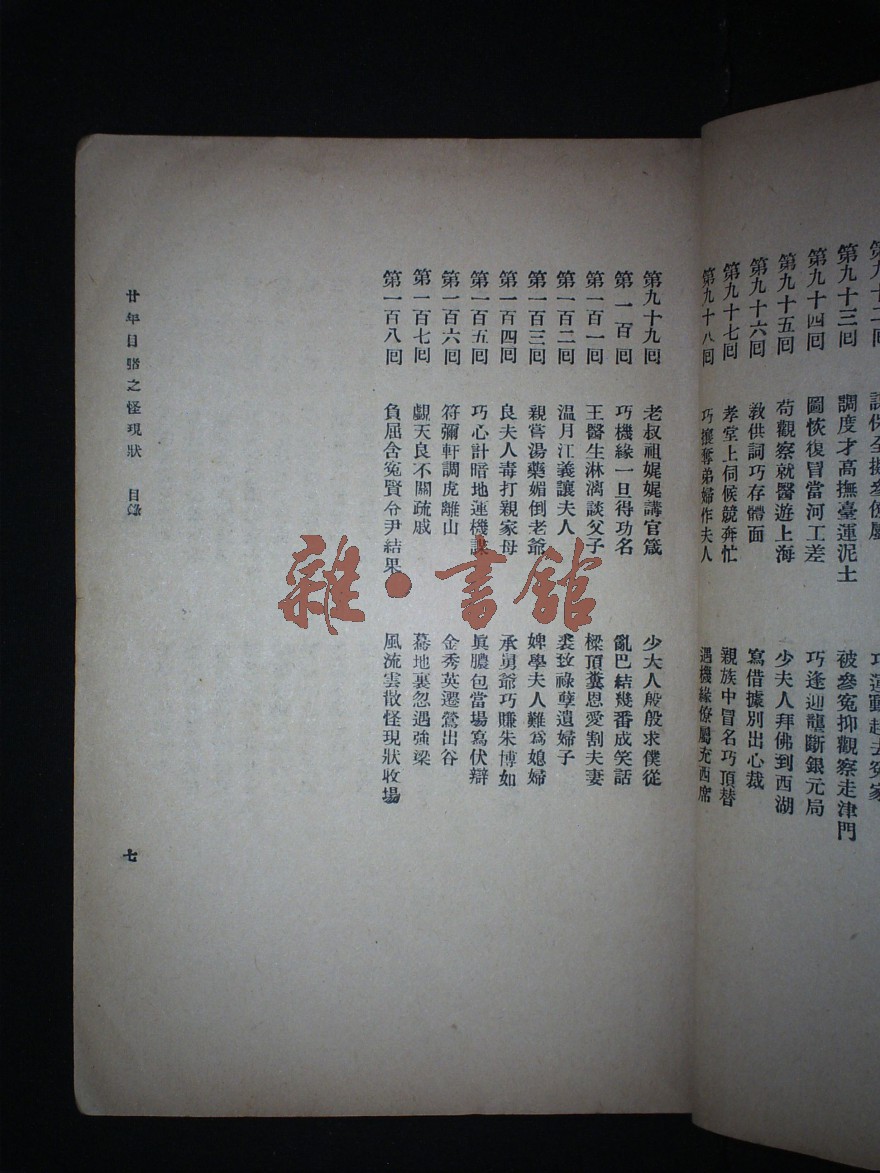 第九十三回 調度才高撫臺運泥土 被參冤抑觀察走津門
第九十四回 圖恢復冒當河工差 巧逢迎壟斷銀元局
第九十五回 苟觀察就醫遊上海 少夫人拜佛到西湖
第九十六回 教供詞巧存體面 寫借據別出心裁
第九十七回 孝堂上伺候競奔忙 親族中冒名巧頂替
第九十八回 巧攘奪弟婦作夫人 遇機緣僚屬充西席
第九十九回 老叔祖娓娓講官箴 少大人殷殷求僕從
第一百回 巧機緣一旦得功名 亂巴結幾番成笑話
第一百一回 王醫生淋漓談父子 樑頂糞恩愛割夫妻
第一百二回 溫月江義讓夫人 裘致祿孽遺婦子
第一百三回 親嘗湯藥媚倒老爺 婢學夫人難爲媳婦
第一百四回 良夫人毒打親家母 承舅爺巧賺朱博如
第一百五回 巧心計暗地運機謀 眞膿包當場寫伏辯
第一百六回 符彌軒調虎離山 金秀英遷鶯出谷
第一百七回 覷天良不關疏戚 驀地裏忽遇強梁
第一百八回 負屈含冤賢令尹結果 風流雲散怪現狀收場
廿年目睹之怪現狀 目錄
七
雜·書館